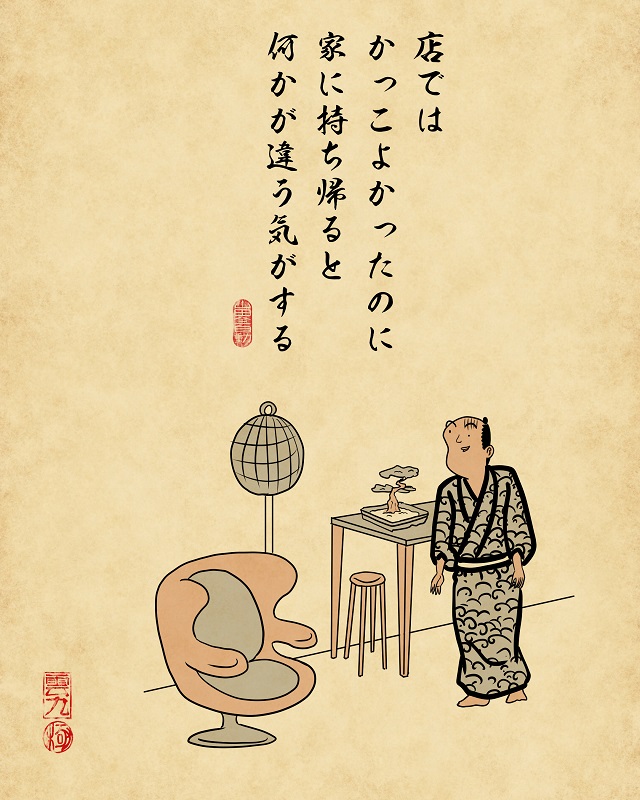 店では
かっこよかったのに
家に持ち帰ると
何かが違う気がする